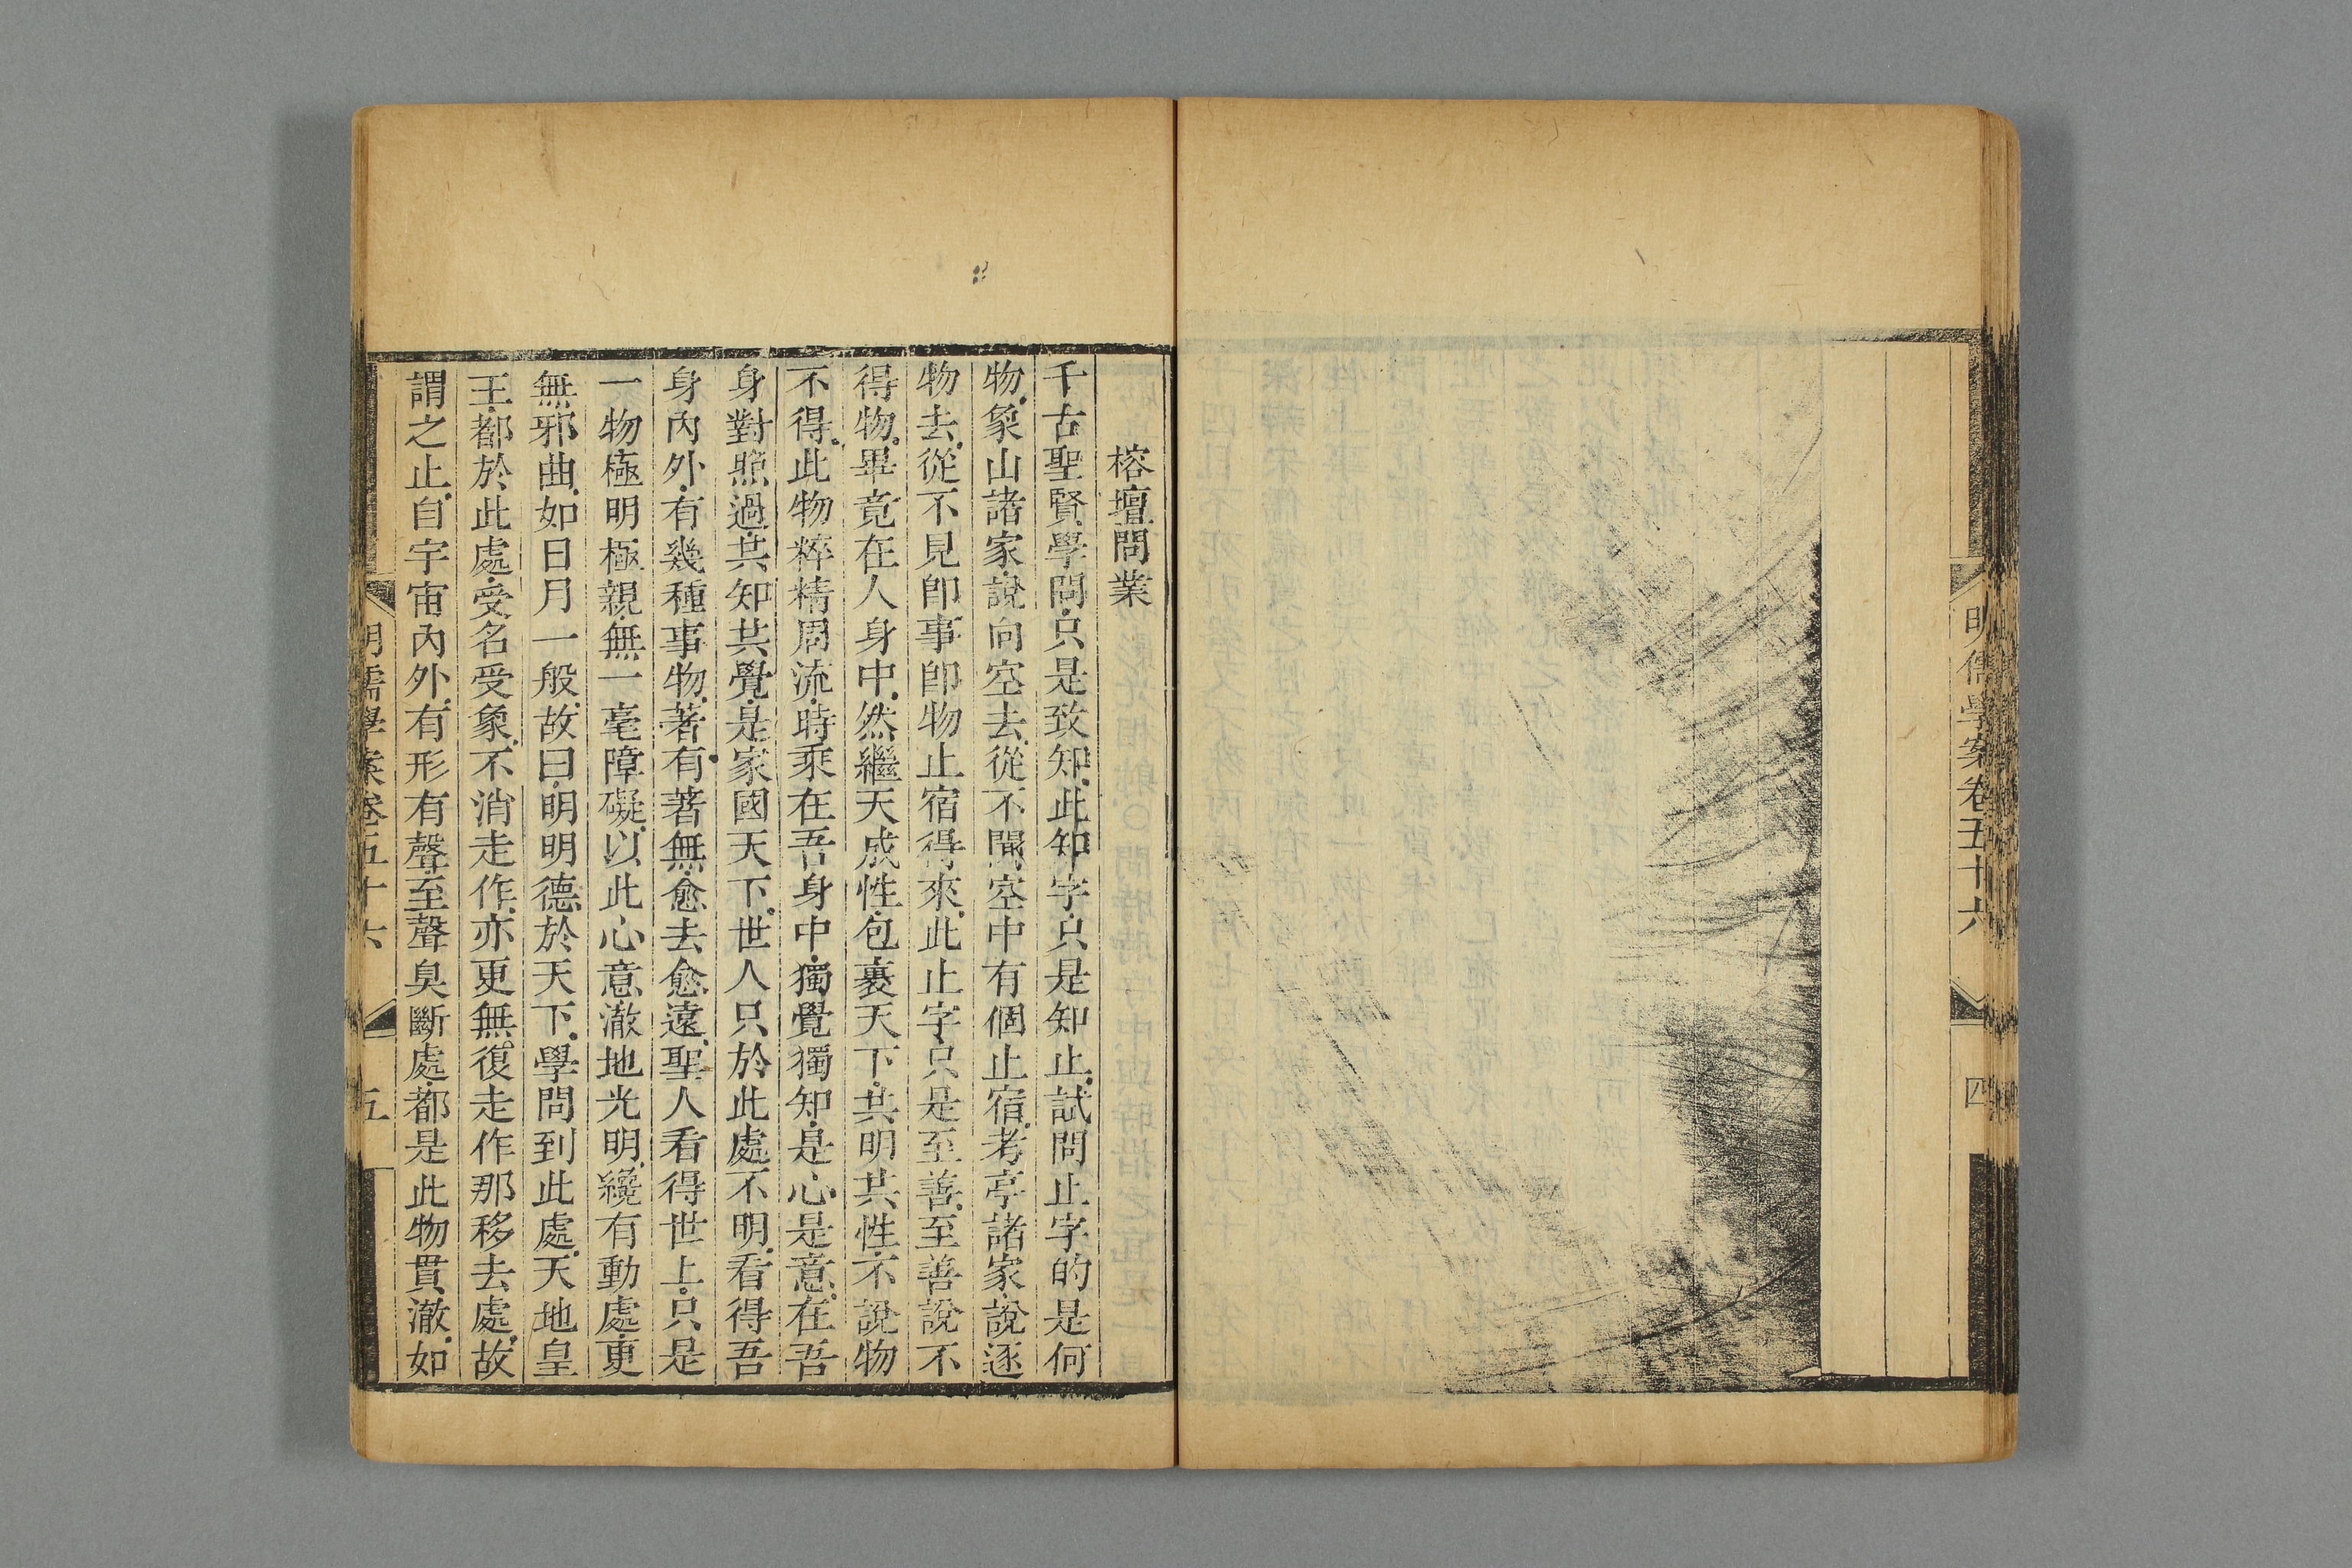 明儒學案卷五十六
四
榕壇問業
千古聖賢學問只是致知此知字只是知止試問止字的是何
物象山諸家說向空去從不聞空中有個止宿考亭諸家說逐
物去從不見卽事卽物止宿得來此止字只是至善至善說不
得物畢竟在人身中然繼天成性包裹天下共明共性不說物
不得此物粹精周流時乘在吾身中獨覺獨知是心是意在吾
身對照過共知共覺是家國天下世人只於此處不明看得吾
身內外有幾種事物著有著無愈去愈遠聖人看得世上只是
一物極明極親無一毫障礙以此心意澈地光明纔有動處更
無邪曲如日月一般故曰明明德於天下學問到此處天地皇
王都於此處受名受象不消走作亦更無復走作那移去處故
謂之止自宇宙內外有形有聲至聲臭斷處都是此物貫澈如
明儒學案卷五十六
五